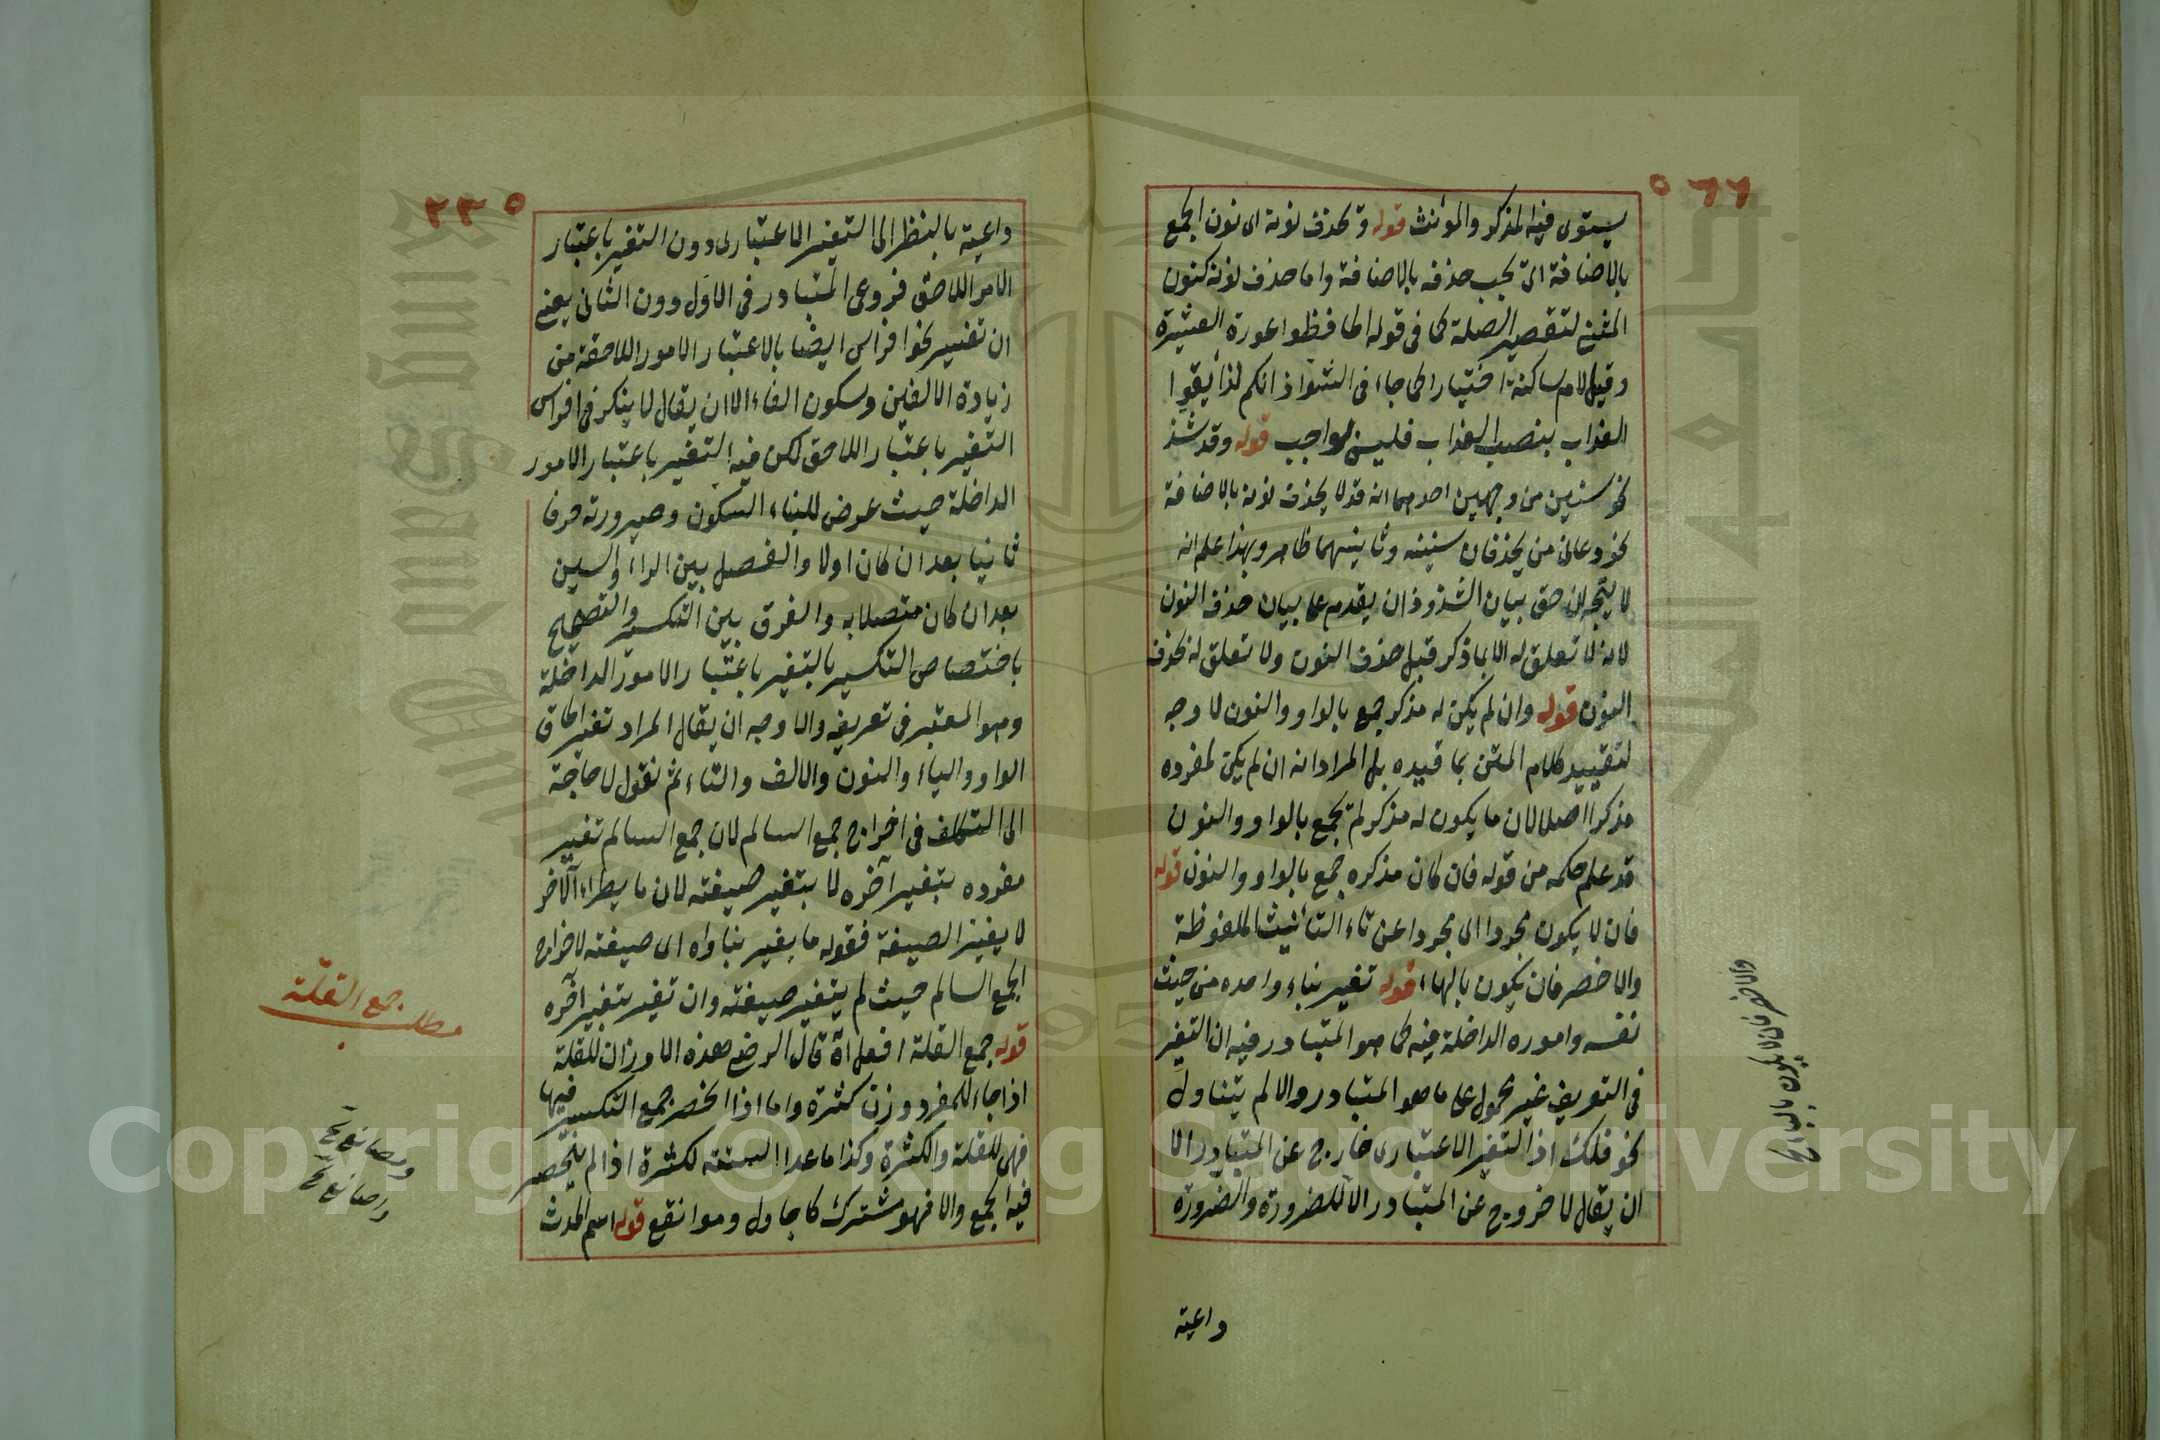 يستوى فيه المذكر والمؤنث قوله وتحذف نونه اى نون الجمع
بالاضافة اى يجب حذفه بالاضافة واما حذف نونه كنون
المثنى لتقصير الصلة كما فى قوله الحافظوا عورة العشيرة
وقيل لام ساكنة اختيارا كما جاء فى الشواذ انكم لذائقوا
العذاب بنصب العذاب فليس بواجب قوله وقد شذ
نحو سنين من وجهين احدهما انه قد لا يحذف نونه بالاضافة
نحو دعانى من نجد فان سنينه وثانيهما ظاهر وبهذا علم انه
لا يتجه ان حق بيان الشذوذ ان يقدم على بيان حذف النون
لانه لا تعلق له الا بما ذكر قبل حذف النون ولا تعلق له بحذف
النون قوله وان لم يكن له مذكر جمع بالواو والنون لا وجه
لتقييد كلام المتن بما قيده بل المراد انه ان لم يكن لمفرده
مذكر اصلا لان ما يكون له مذكر لم يجمع بالواو والنون
قد علم حكمه من قوله فان كان مذكره جمع بالواو والنون قوله
فان لا يكون مجردا اى مجردا عن تاء التأنيث الملفوظة
والاخصر فان يكون بالهاء قوله تغير بناء واحده من حيث
نفسه واموره الداخلة فيه كما هو المتبادر فيه ان التغير
فى التعريف غير محمول على ما هو المتبادر والا لم يتناول
نحو فلك اذ التغير الاعتبارى خارج عن المتبادر الا
ان يقال لا خروج عن المتبادر الا للضرورة والضرورة
داعية
٢٣٥
داعية بالنظر الى التغير الاعتبارى دون التغير باعتبار
الامر اللاحق فروعى المتبادر فى الاول دون الثانى يعنى
ان تغيير نحو افراس ايضا بالاعتبار الامور اللاحقة من
زيادة الالفين وسكون الفاء الا ان يقال لا ينكر فى افراس
التغير باعتبار اللاحق لكن فيه التغير باعتبار الامور
الداخلة حيث عرض للبناء السكون وصيرورته حرفا
ثانيا بعد ان كان اولا والفصل بين الراء والسين
بعد ان كان متصلا به والفرق بين التكسير والتصحيح
باختصاص التكسير بالتغير باعتبار الامور الداخلة
وهو المعتبر فى تعريفه والاوجه ان يقال المراد تغير الحاق
الواو والياء والنون والالف والتاء ثم نقول لا حاجة
الى التكلف فى اخراج جمع السالم لان جمع السالم تغير
مفرده بتغير آخره لا بتغير صيغته لان ما يطراء الآخر
لا يغير الصيغة فقوله ما يغير بناواه اى صيغته لاخراج
الجمع السالم حيث لم يتغير صيغته وان تغير بتغير آخره
قوله جمع القلة افعل اه قال الرضى هذه الاوزان للقلة
اذا جاء للمفرد وزن كثرة واما اذا انحصر جمع التكسير فيها
فهى للقلة والكثرة وكذا ما عدا الستته لكثرة اذا لم ينحصر
فيه الجمع والا فهو مشترك كاجاول ومواقع قوله اسم الحدث
مطلب جمع القلة
Copyright © King Saud University